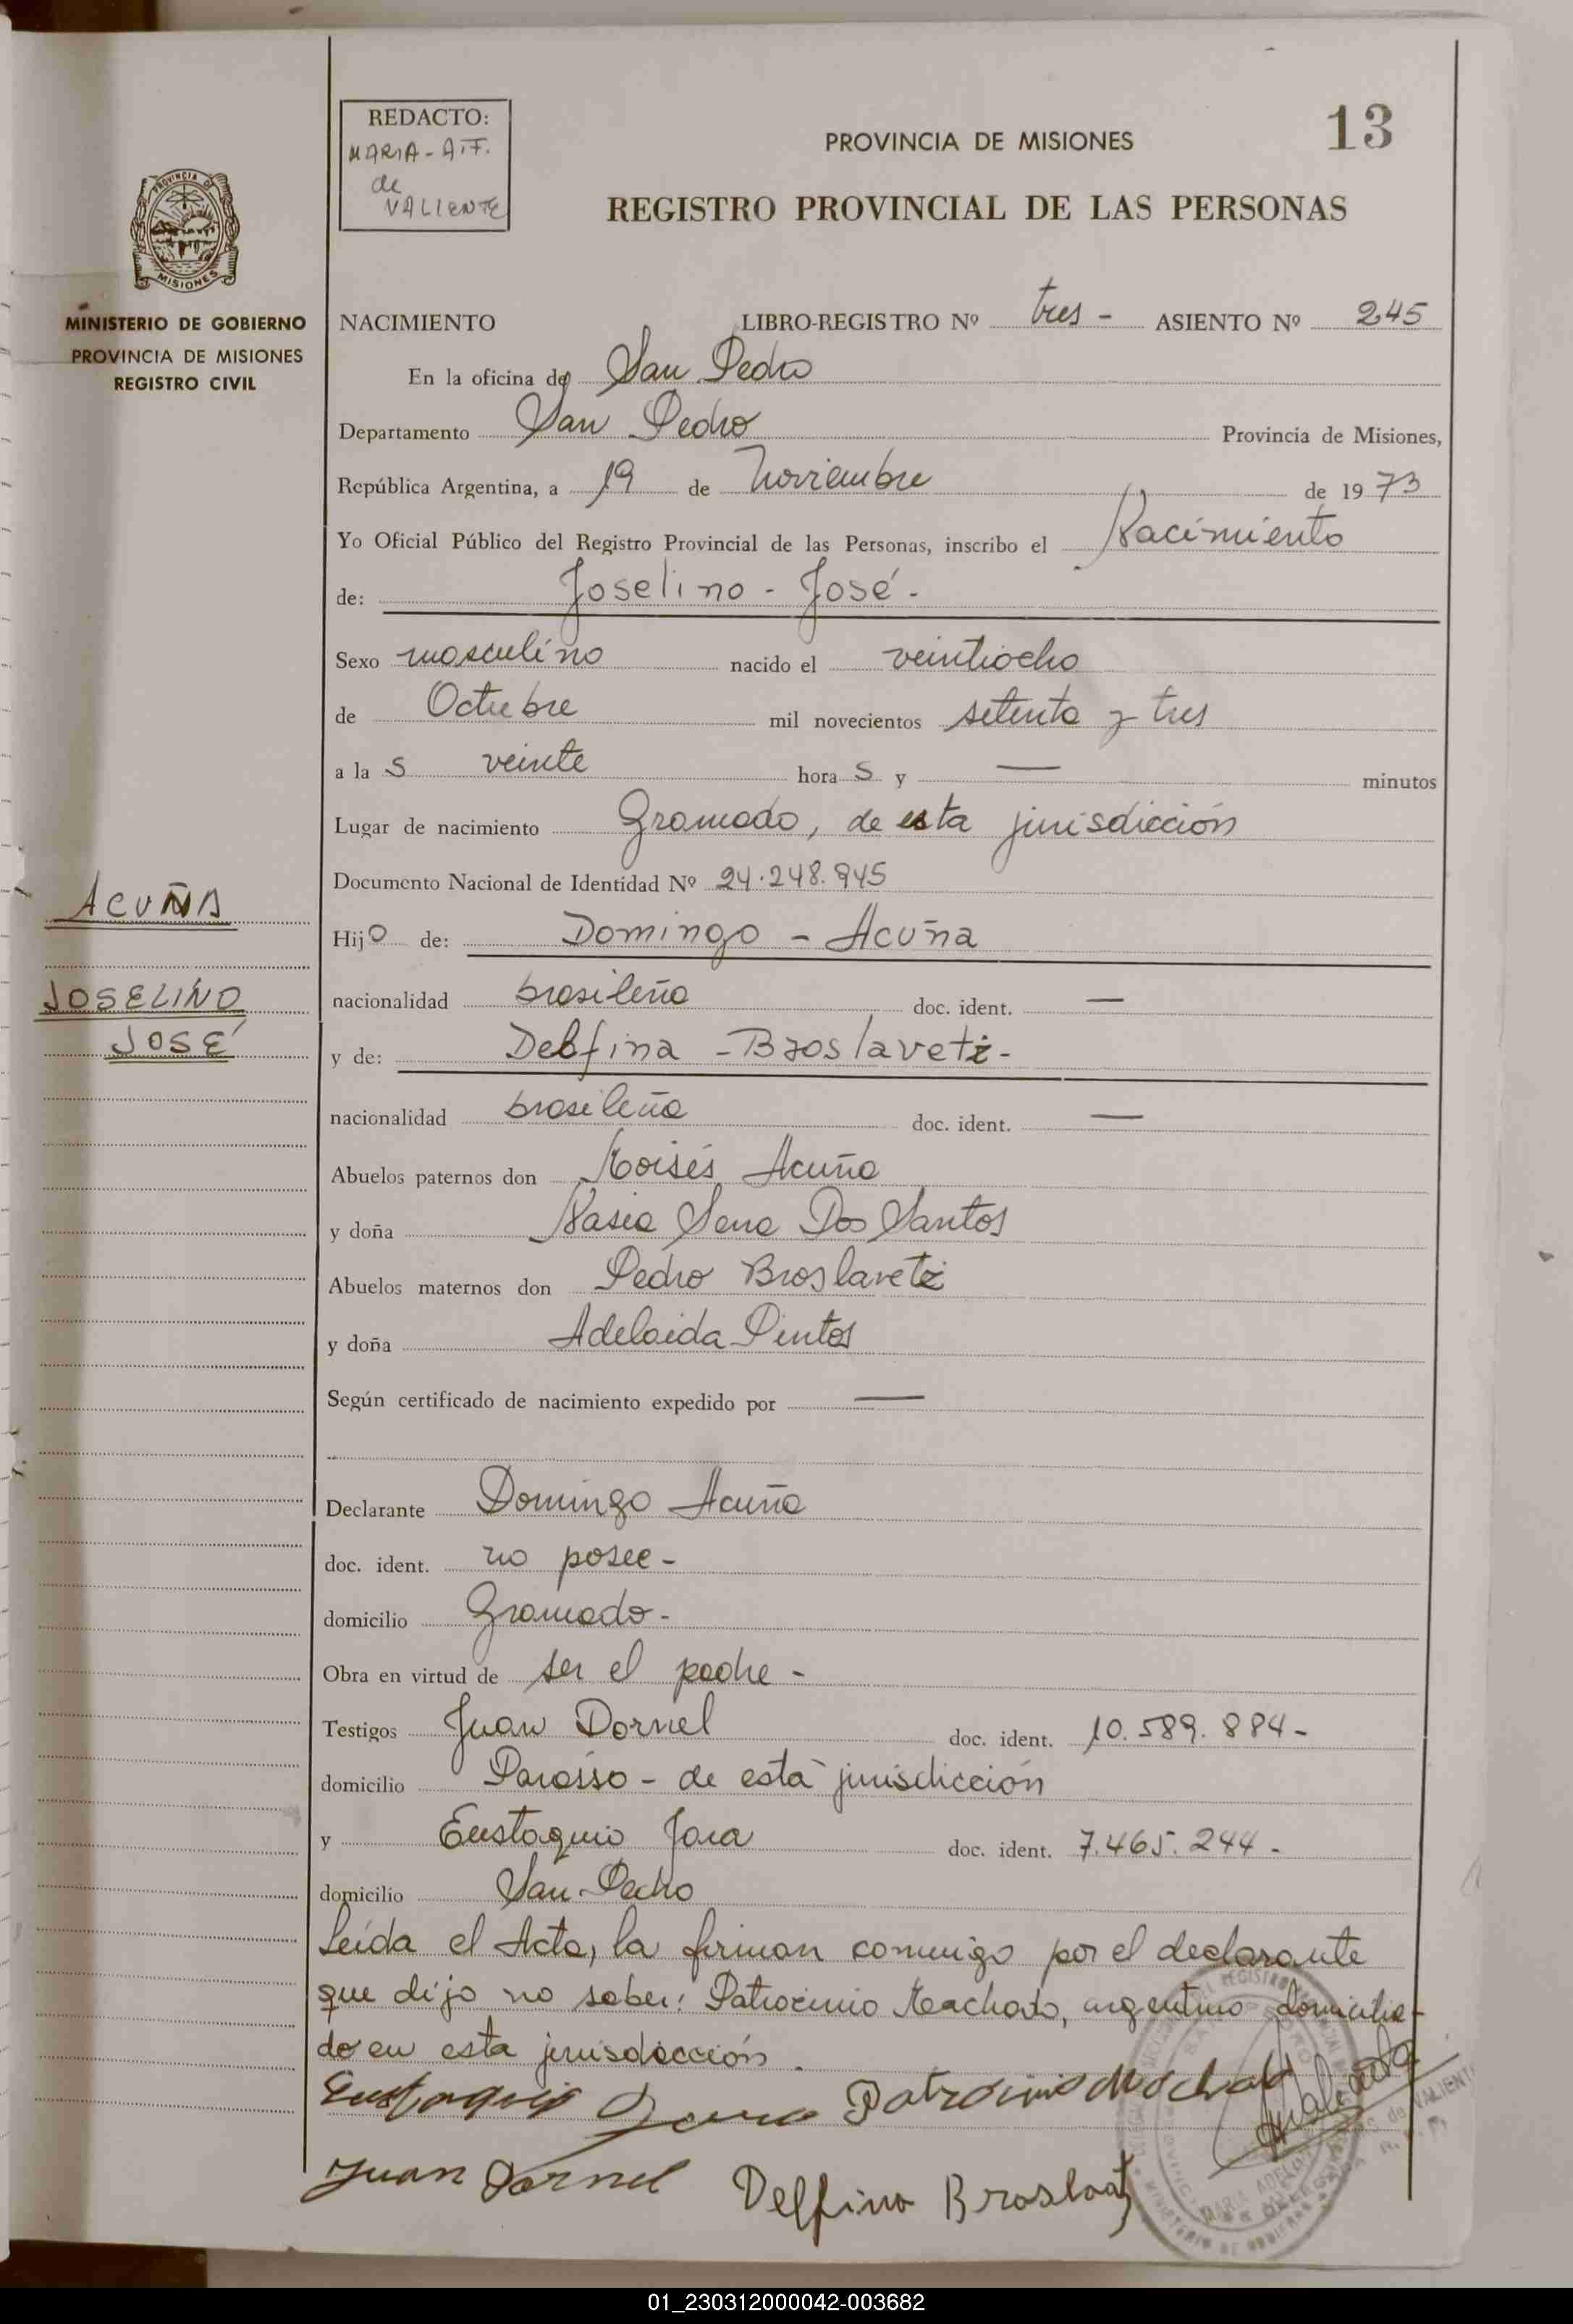 REDACTO:
MARIA - A.T.
de
VALIENTE
PROVINCIA DE MISIONES
13
REGISTRO PROVINCIAL DE LAS PERSONAS
PROVINCIA DE
MISIONES
MINISTERIO DE GOBIERNO
PROVINCIA DE MISIONES
REGISTRO CIVIL
NACIMIENTO LIBRO-REGISTRO Nº tres - ASIENTO Nº 245
En la oficina de San Pedro
Departamento San Pedro Provincia de Misiones,
República Argentina, a 19 de Noviembre de 1973
Yo Oficial Público del Registro Provincial de las Personas, inscribo el Nacimiento
de: Joselino - José -
Sexo masculino nacido el veintiocho
de Octubre mil novecientos setenta y tres
a las veinte horas y — minutos
Lugar de nacimiento Gramado, de esta jurisdicción
Documento Nacional de Identidad Nº 24.248.945
ACUÑA
Hijo de: Domingo - Acuña
JOSELINO
nacionalidad brasileña doc. ident. —
JOSÉ
y de: Delfina - Broslavetz -
nacionalidad brasileña doc. ident. —
Abuelos paternos don Moisés Acuña
y doña Sena Dos Santos
Abuelos maternos don Pedro Broslavetz
y doña Adelaida Pintos
Según certificado de nacimiento expedido por —
Declarante Domingo Acuña
doc. ident. no posee -
domicilio Gramado -
Obra en virtud de ser el padre -
Testigos Juan Dornel doc. ident. 10.589.884 -
domicilio Paraíso - de esta jurisdicción
y Eustaquio Jara doc. ident. 7.465.244 -
domicilio San Pedro
Leída el Acta, la firman conmigo por el declarante
que dijo no saber: Patrocinio Machado, argentino domicilia-
do en esta jurisdicción.
Eustaquio Jara Patrocinio Machado
Juan Dornel Delfina
de VALIENTE
MINISTERIO DE GOBIERNO
01_230312000042-003682